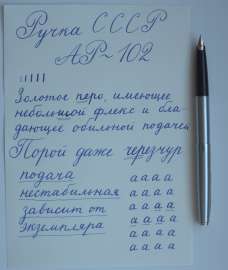 Ручка СССР
АР-102
Золотое перо, имеющее
небольшой флекс и бла-
дающее обильной подачей
Порой даже черезчур
подача
нестабильная
зависит от
экземпляра
а а а а
а а а а
а а а а
а а а а
а а а а
а а а а